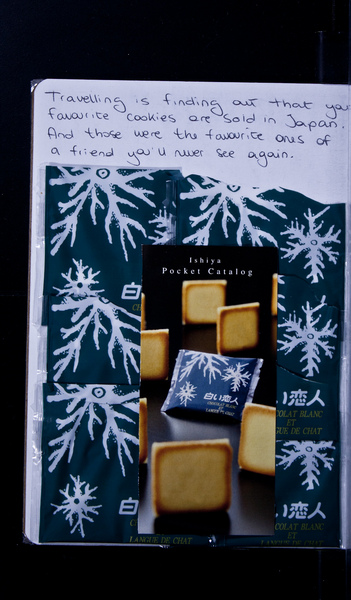 Travelling is finding out that you
favourite cookies are sold in Japan.
And those were the favourite ones of
a friend you'll never see again.
Ishiya
Pocket Catalog
白い恋人
CHOCOLAT BLANC
ET
LANGUE DE CHAT
白
い恋人
COLAT BLANC
ET
GUE DE CHAT
白
LANGUE DE CHAT
い恋人
COLAT BLANC
ET
LANGUE DE CHAT